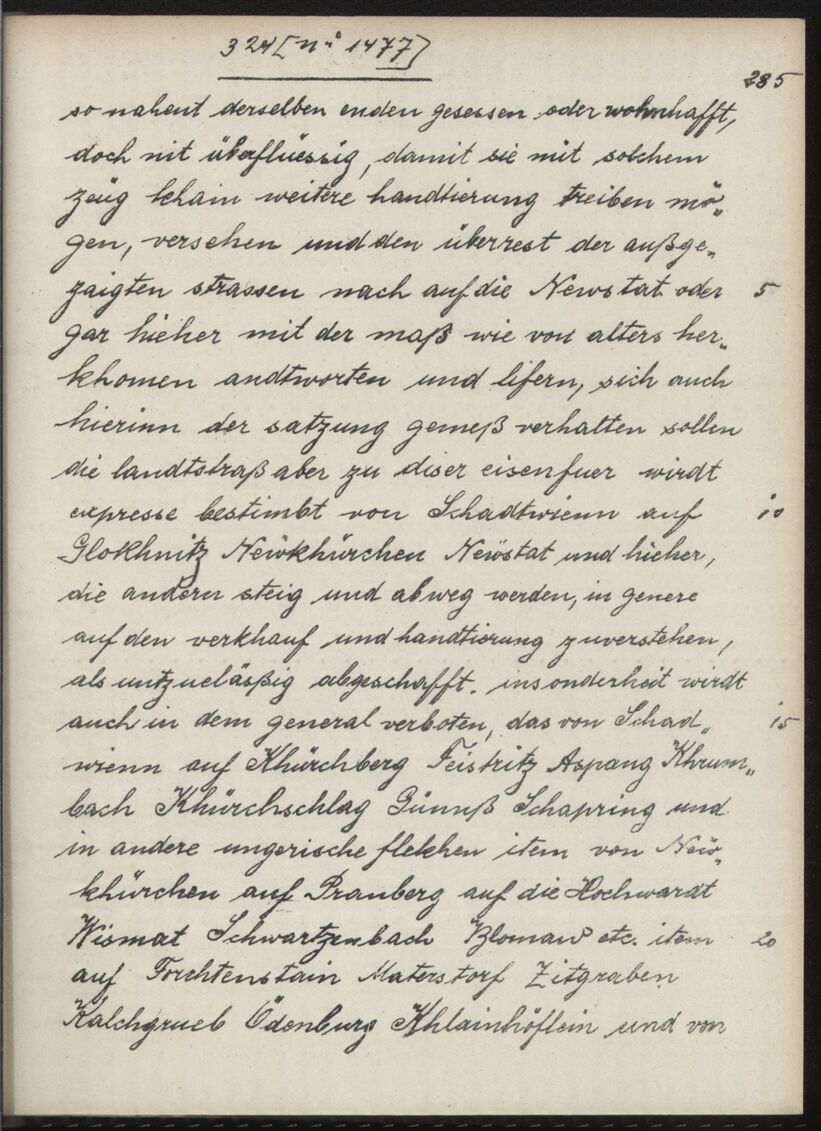 324 [n: 1477]
285
so nahent derselben enden gesessen oder wohnhafft,
doch nit überflüessig, damit sie mit solchem
zeüg khain weitere handtierung treiben mö„
gen, versehen und den überrest der außge„
zaigten strassen nach auf die Newstat oder 5
gar hieher mit der maß wie von alters her„
khomen andtworten und lifern, sich auch
hierinn der satzung gemeß verhalten sollen
die landtstraß aber zu diser eisenfuer wirdt
expresse bestimbt von Schadtwienn auf 10
Glokhnitz Newkhürchen Newstat und hieher,
die andern steig und abweg werden, in genere
auf den verkhauf und handtierung zuverstehen,
als untzueläßig abgeschafft. insonderheit wirdt
auch in dem general verboten, das von Schad„ 15
wienn auf Khürchberg Feistritz Aspang Khrum„
bach Khürchschlag Günnß Schapring und
in andere ungerische flekhen item von New„
khürchen auf Pranberg auf die Hochwardt
Wismat Schwartzenbach Bloman etc. item 20
auf Forchtenstain Materstorf Zitgraben
Kalchgrueb Ödenburg Khlainhöflein und von